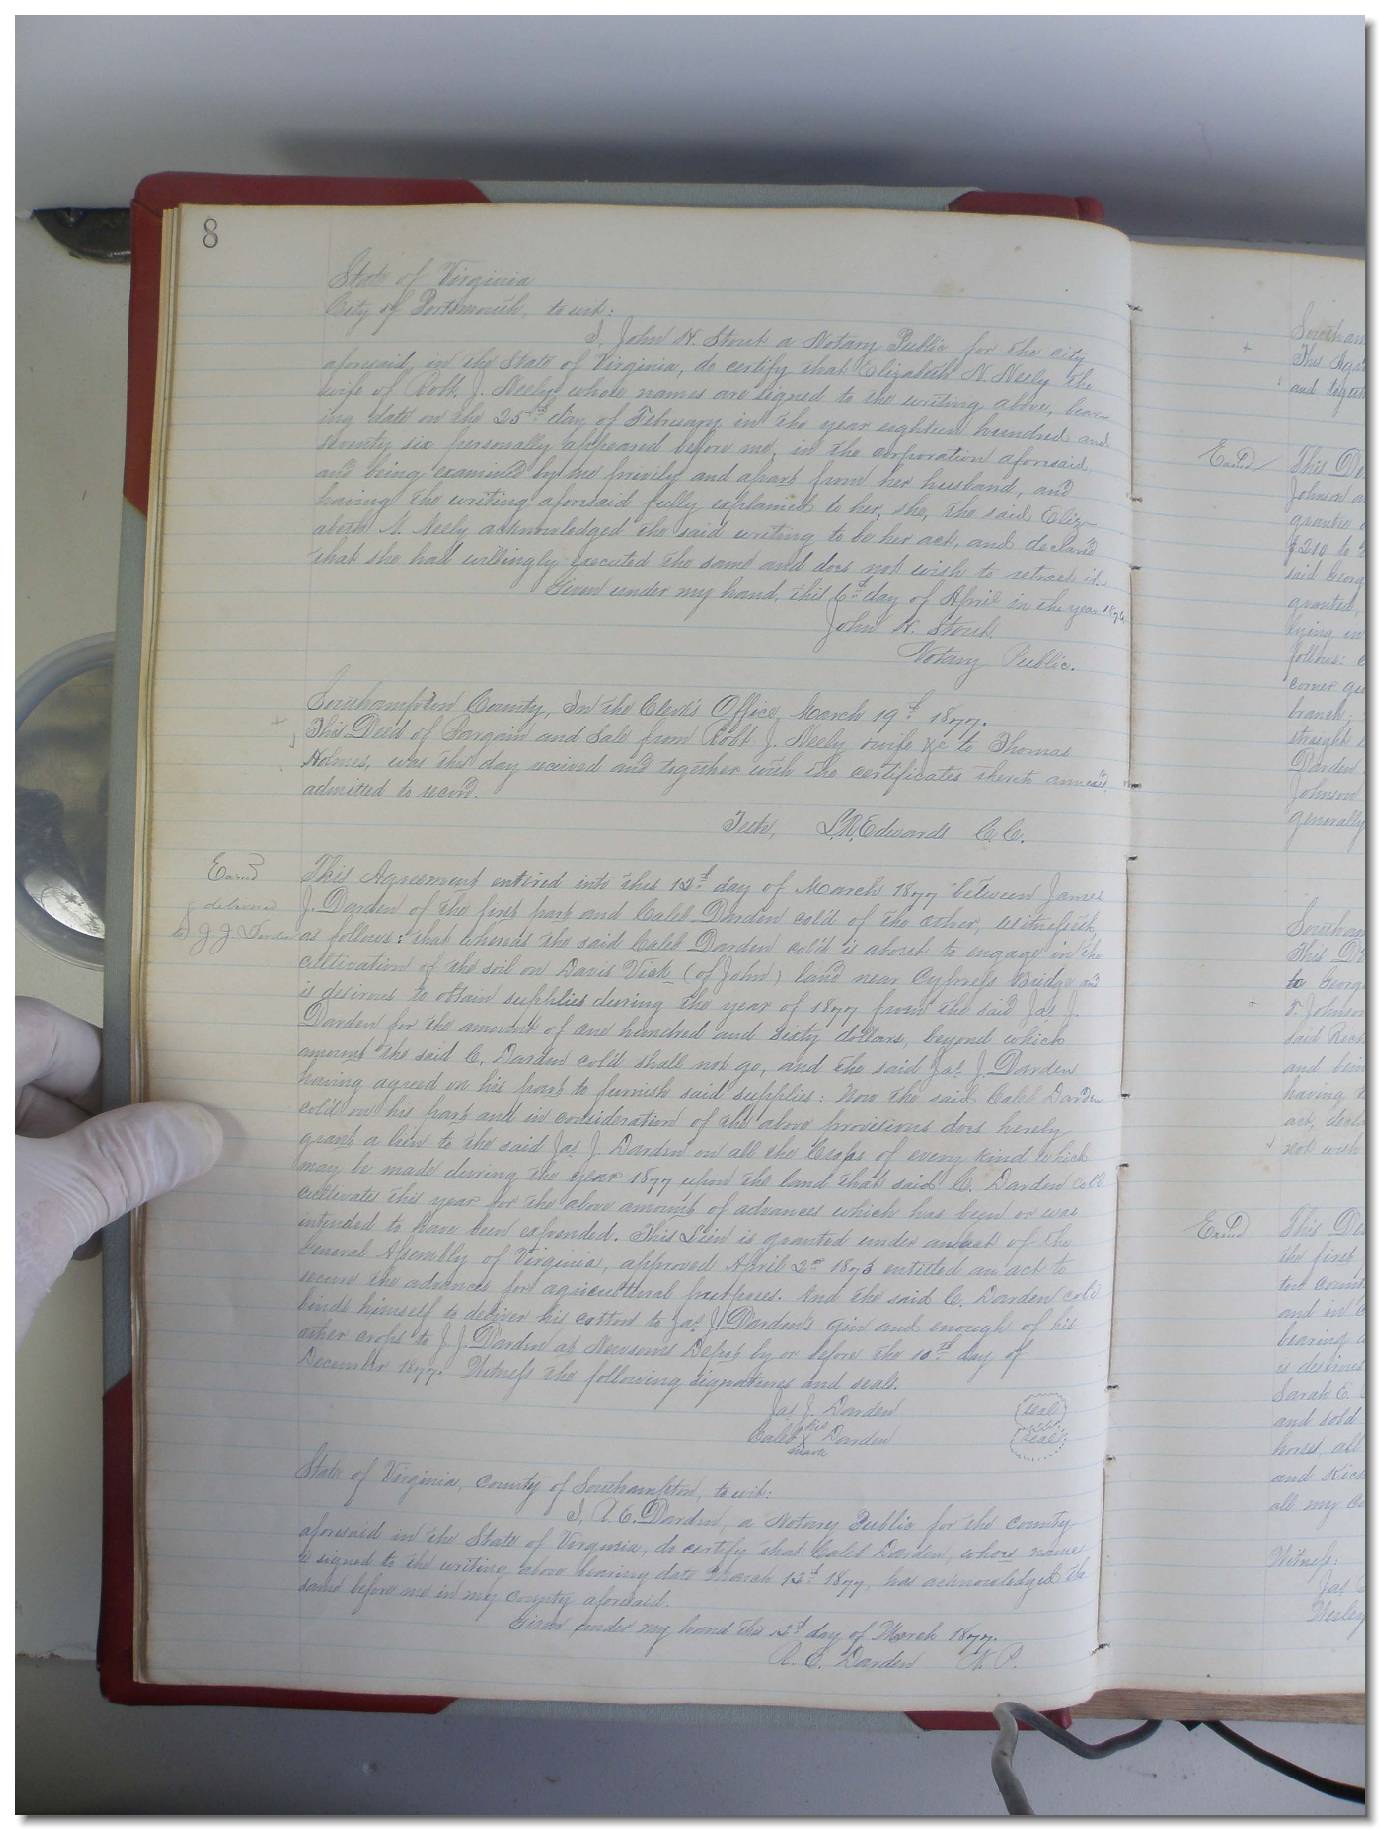 8
State of Virginia
City of Portsmouth, to wit:
I, John H. Stout a Notary Public for the city
aforesaid, in the State of Virginia, do certify that Elizabeth N. Neely the
wife of Robt. J. Neely whose names are signed to the writing above, bear-
ing date on the 25th day of February in the year eighteen hundred and
seventy six personally appeared before me, in the corporation aforesaid,
and being examined by me privily and apart from her husband, and
having the writing aforesaid fully explained to her, she, the said Eliz-
abeth N. Neely acknowledged the said writing to be her act, and declared
that she had willingly executed the same and does not wish to retract it.
Given under my hand, this 6th day of April in the year 1876
John H. Stout
Notary Public.
Southampton County, In the Clerk's Office, March 19th 1877.
This Deed of Bargain and Sale from Robt J. Neely & wife &c to Thomas
Holmes, was this day received and together with the certificates thereto annexed
admitted to record.
Teste, L.R. Edwards C.C.
Exmd
delivered
to J. J. Darden
This Agreement entered into this 12th day of March 1877 between James
J. Darden of the first part and Caleb Darden cold of the other, witnesseth,
as follows: that whereas the said Caleb Darden cold is about to engage in the
cultivation of the soil on Davis Vick (of John) land near Cypress Bridge and
is desirous to obtain supplies during the year of 1877 from the said Jas J.
Darden for the amount of one hundred and sixty dollars, beyond which
amount the said C. Darden cold shall not go, and the said Jas J. Darden
having agreed on his part to furnish said supplies: Now the said Caleb Darden
cold on his part and in consideration of the above provisions does hereby
grant a lien to the said Jas J. Darden on all the Crops of every kind which
may be made during the year 1877 upon the land that said C. Darden cold
cultivates this year for the above amount of advances which has been or was
intended to have been expended. This Lien is granted under an act of the
General Assembly of Virginia, approved April 2nd 1873 entitled an act to
secure the advances for agricultural purposes. And the said C. Darden cold
binds himself to deliver his cotton to Jas J. Darden's gin and enough of his
other crops to J. J. Darden at Newsoms Depot by or before the 10th day of
December 1877. Witness the following signatures and seals.
Jas J. Darden seal
Caleb his X mark Darden seal
State of Virginia, County of Southampton, to wit:
I, A. C. Darden, a Notary Public for the county
aforesaid in the State of Virginia, do certify that Caleb Darden, whose name
is signed to the writing above bearing date March 12th 1877, has acknowledged the
same before me in my county aforesaid.
Given under my hand this 12th day of March 1877.
A. C. Darden N. P.
and
Exmd
This De
Johnson
grantee
$210 to
said Georg
granted,
lying in
follows:
corner
branch;
straight
Darden
Johnson
generally
This De
to Georg
Johnson
said
and bein
having
act,
not wish
Exmd
This De
the first
ton Count
and
bearing
is desirous
Sarah E.
and sold
horse, all
and
all my
Witness:
Jas
Wesley